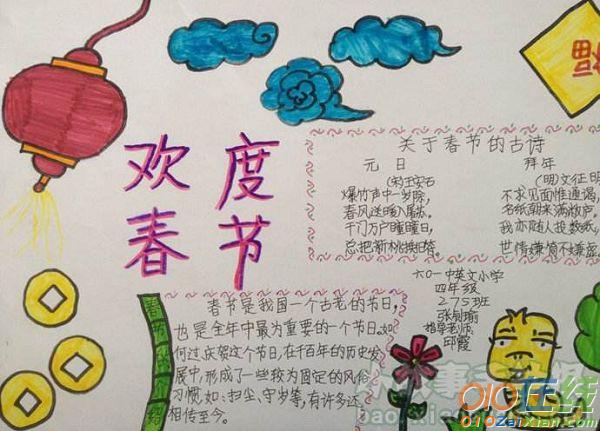 欢 度
春 节
关于春节的古诗
元 日
(宋)王安石
爆竹声中一岁除,
春风送暖入屠苏。
千门万户曈曈日,
总把新桃换旧符。
拜年
(明)文征明
不求见面惟通谒,
名纸朝来满敝庐。
我亦随人投数纸,
世情嫌简不嫌虚
六0一中英文小学
四年级
275班
指导老师:
邱霞
春节是我国一个古老的节日,
也是全年中最为重要的一个节日,如
何过、庆贺这个节日,在千百年的历史发
展中,形成了一些较为固定的风俗
习惯,如:扫尘、守岁等,有许多还
相传至今。
010在线
010zaixian.com